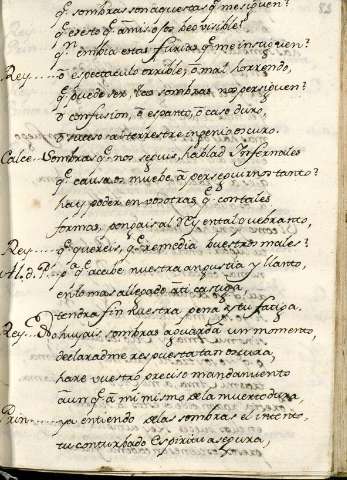 q̃ sombras son aquestas q̃ me siguen?
q̃ es esto q̃ a mis ojos veo visible?
q.n embia estas furias q̃ me instiguen?
Rey.... ō espectaculo orrible, ō mal horrendo,
q̃ puede ser, veo sombras, nos persiguen?
ō confusion, ō espanto, ō caso duro,
ō suceso al terrestre ingenio escuro.
Calce.. Sombras q̃ nos seguis, hablad Infernales
q̃ causa os muebe à perseguirnos tanto?
hay poder en vosotras q̃ con tales
formas, pongais al Rey en tal quebranto,
Rey.... q̃ quereis, q̃ remedia vuestros males?
p.r q̃ acabe nuestra angustia y llanto,
en lo mas allegado a ti castiga
tendra fin nuestra pena y tu fatiga.
Rey... No huyais sombras aguardà un momento,
declaradme respuesta tan oscura,
hare vuestro preciso mandamiento
aun q̃ a mi mismo de la muerte dura,
Prin.... ya entiendo de las sombras el intento,
tu conturbado Espiritu asegura,